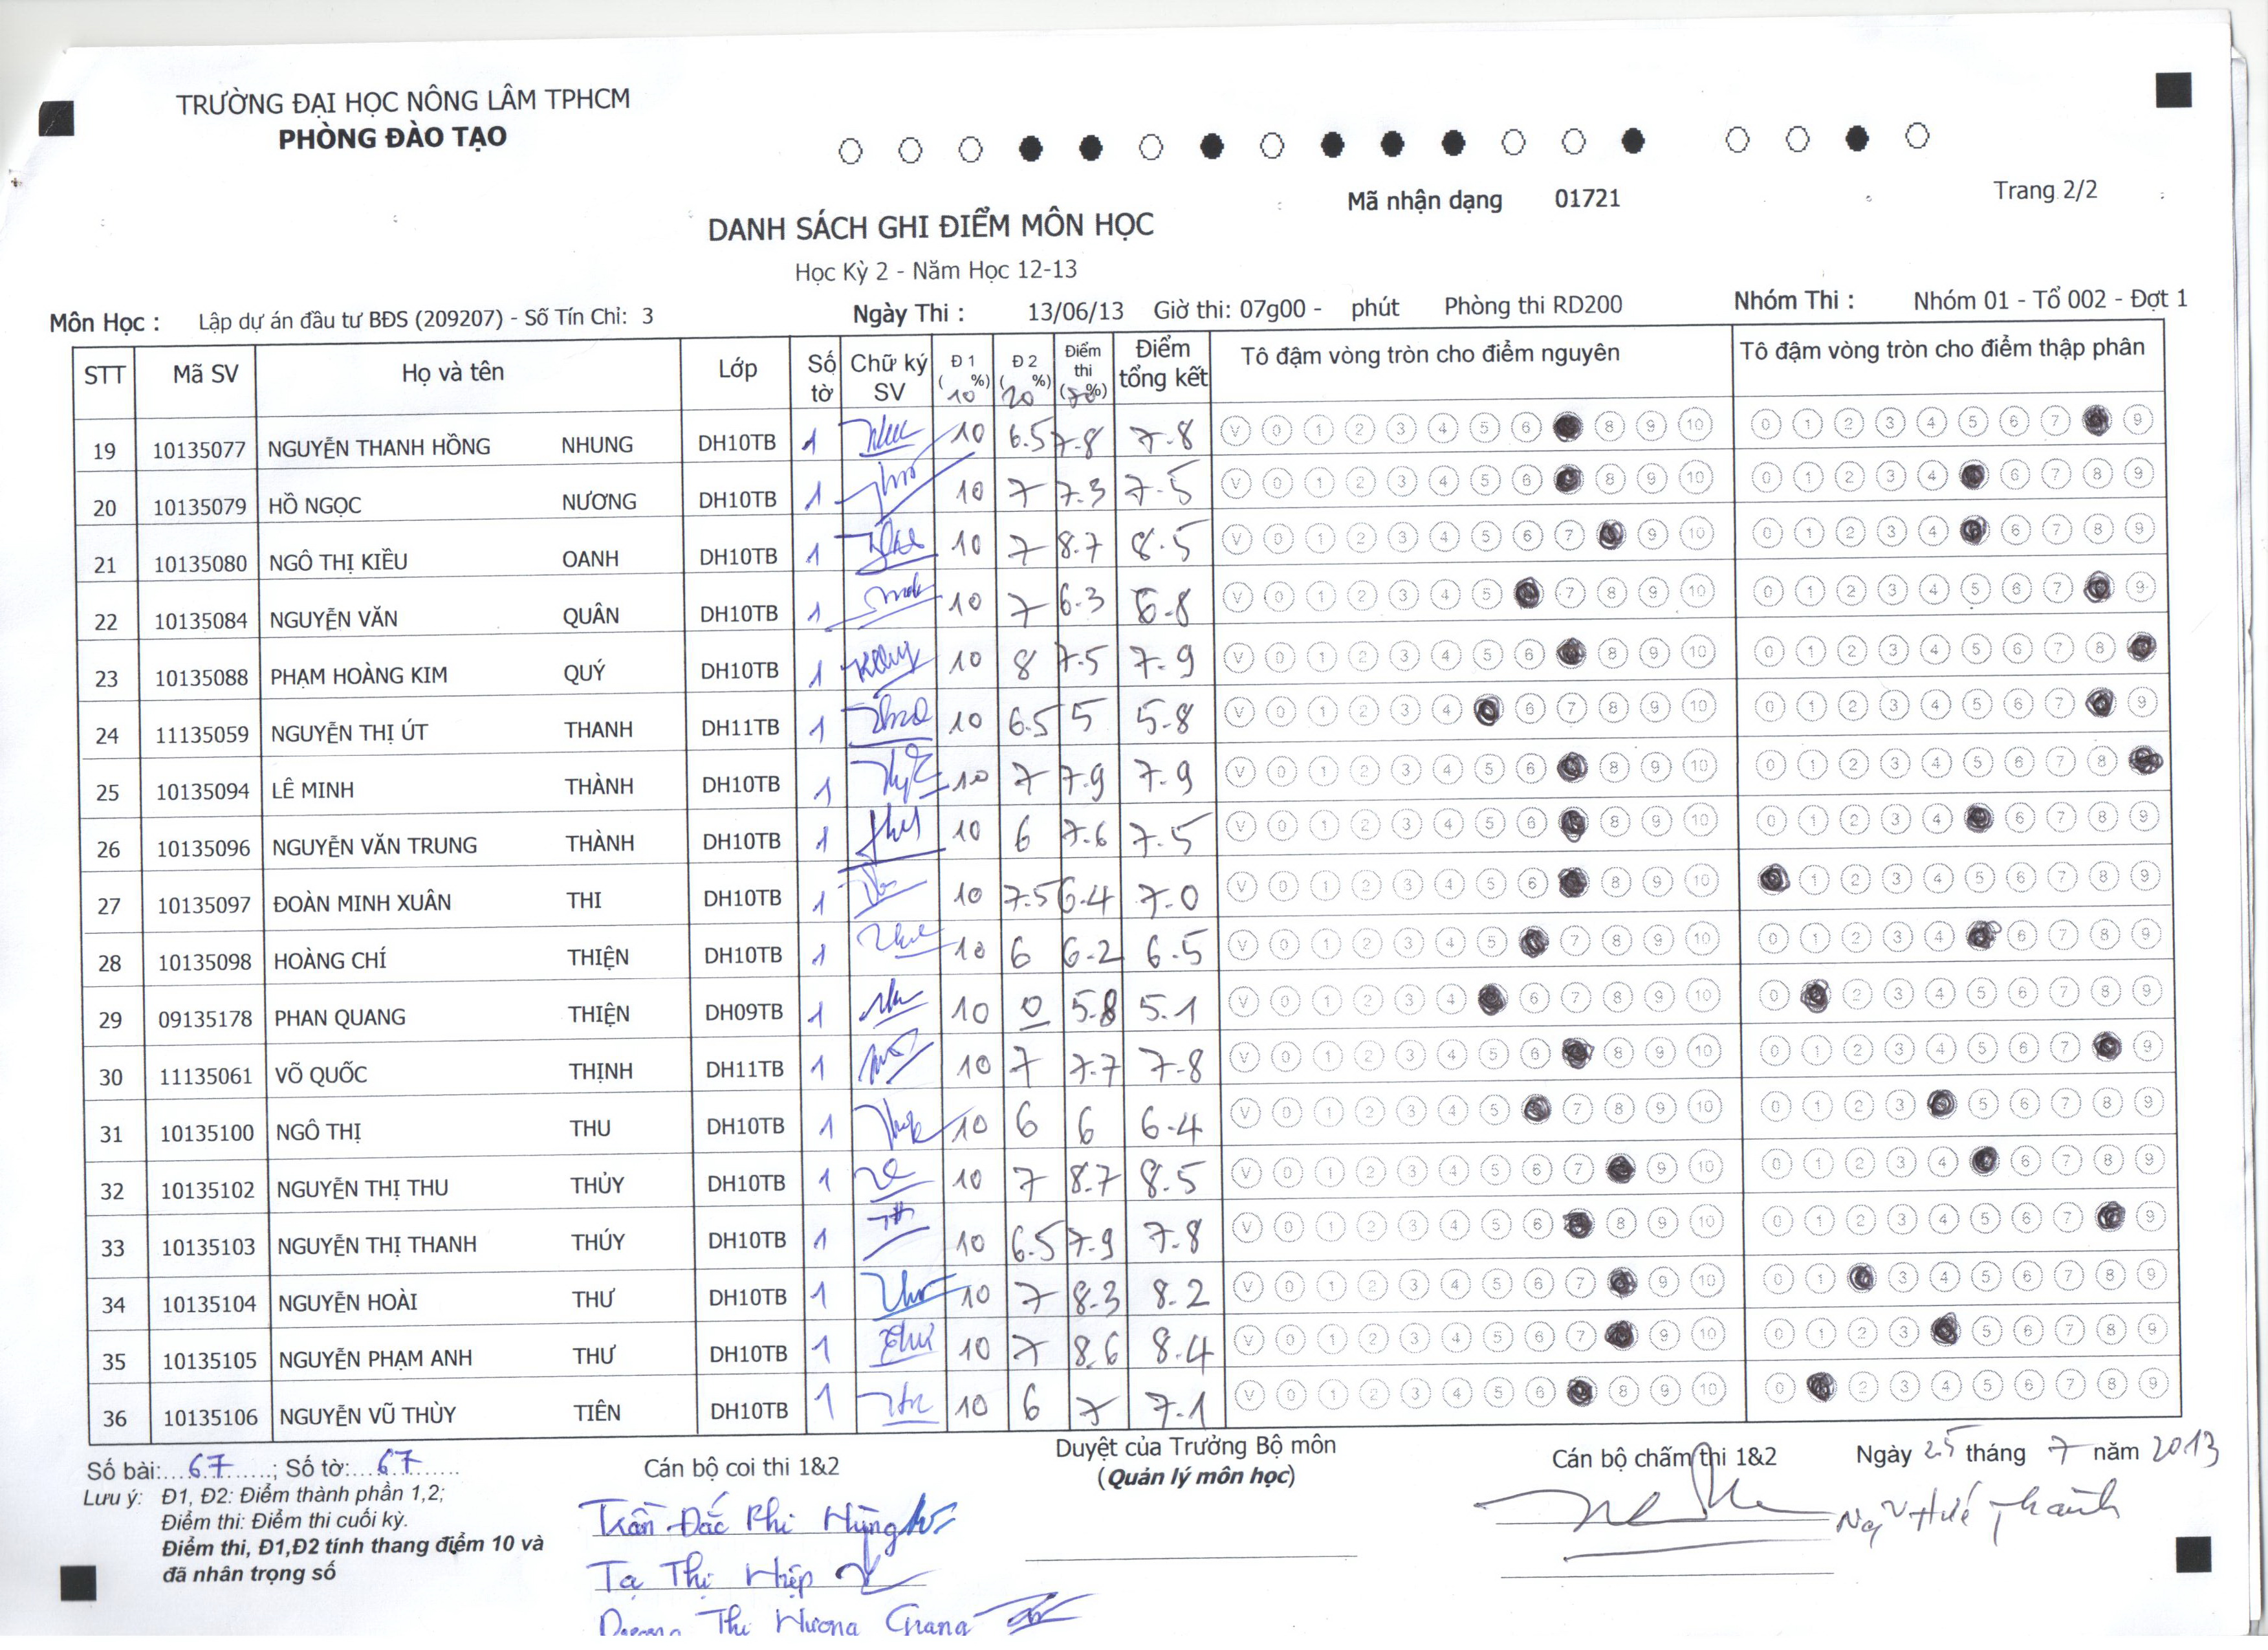 TRƯỜNG ĐẠI HỌC NÔNG LÂM TPHCM
PHÒNG ĐÀO TẠO
Mã nhận dạng 01721
Trang 2/2
DANH SÁCH GHI ĐIỂM MÔN HỌC
Học Kỳ 2 - Năm Học 12-13
Môn Học : Lập dự án đầu tư BĐS (209207) - Số Tín Chỉ: 3 Ngày Thi : 13/06/13 Giờ thi: 07g00 - phút Phòng thi RD200 Nhóm Thi : Nhóm 01 - Tổ 002 - Đợt 1
STT Mã SV Họ và tên Lớp Số tờ Chữ ký SV Đ 1 (10%) Đ 2 (20%) Điểm thi (70%) Điểm tổng kết Tô đậm vòng tròn cho điểm nguyên Tô đậm vòng tròn cho điểm thập phân
19 10135077 NGUYỄN THANH HỒNG NHUNG DH10TB 1 10 6.5 7.8 7.8 V 0 1 2 3 4 5 6 8 9 10 0 1 2 3 4 5 6 7 9
20 10135079 HỒ NGỌC NƯƠNG DH10TB 1 10 7 7.3 7.5 V 0 1 2 3 4 5 6 8 9 10 0 1 2 3 4 6 7 8 9
21 10135080 NGÔ THỊ KIỀU OANH DH10TB 1 10 7 8.7 8.5 V 0 1 2 3 4 5 6 7 9 10 0 1 2 3 4 6 7 8 9
22 10135084 NGUYỄN VĂN QUÂN DH10TB 1 10 7 6.3 6.8 V 0 1 2 3 4 5 7 8 9 10 0 1 2 3 4 5 6 7 9
23 10135088 PHẠM HOÀNG KIM QUÝ DH10TB 1 10 8 7.5 7.9 V 0 1 2 3 4 5 6 8 9 10 0 1 2 3 4 5 6 7 8
24 11135059 NGUYỄN THỊ ÚT THANH DH11TB 1 10 6.5 5 5.8 V 0 1 2 3 4 6 7 8 9 10 0 1 2 3 4 5 6 7 9
25 10135094 LÊ MINH THÀNH DH10TB 1 10 7 7.9 7.9 V 0 1 2 3 4 5 6 8 9 10 0 1 2 3 4 5 6 7 8
26 10135096 NGUYỄN VĂN TRUNG THÀNH DH10TB 1 10 6 7.6 7.5 V 0 1 2 3 4 5 6 8 9 10 0 1 2 3 4 6 7 8 9
27 10135097 ĐOÀN MINH XUÂN THI DH10TB 1 10 7.5 6.4 7.0 V 0 1 2 3 4 5 6 8 9 10 1 2 3 4 5 6 7 8 9
28 10135098 HOÀNG CHÍ THIỆN DH10TB 1 10 6 6.2 6.5 V 0 1 2 3 4 5 7 8 9 10 0 1 2 3 4 6 7 8 9
29 09135178 PHAN QUANG THIỆN DH09TB 1 10 0 5.8 5.1 V 0 1 2 3 4 6 7 8 9 10 0 2 3 4 5 6 7 8 9
30 11135061 VÕ QUỐC THỊNH DH11TB 1 10 7 7.7 7.8 V 0 1 2 3 4 5 6 8 9 10 0 1 2 3 4 5 6 7 9
31 10135100 NGÔ THỊ THU DH10TB 1 10 6 6 6.4 V 0 1 2 3 4 5 7 8 9 10 0 1 2 3 5 6 7 8 9
32 10135102 NGUYỄN THỊ THU THỦY DH10TB 1 10 7 8.7 8.5 V 0 1 2 3 4 5 6 7 9 10 0 1 2 3 4 6 7 8 9
33 10135103 NGUYỄN THỊ THANH THÚY DH10TB 1 10 6.5 7.9 7.8 V 0 1 2 3 4 5 6 8 9 10 0 1 2 3 4 5 6 7 9
34 10135104 NGUYỄN HOÀI THƯ DH10TB 1 10 7 8.3 8.2 V 0 1 2 3 4 5 6 7 9 10 0 1 3 4 5 6 7 8 9
35 10135105 NGUYỄN PHẠM ANH THƯ DH10TB 1 Thư 10 7 8.6 8.4 V 0 1 2 3 4 5 6 7 9 10 0 1 2 3 5 6 7 8 9
36 10135106 NGUYỄN VŨ THÙY TIÊN DH10TB 1 10 6 7 7.1 V 0 1 2 3 4 5 6 8 9 10 0 2 3 4 5 6 7 8 9
Số bài: 67; Số tờ: 67 Cán bộ coi thi 1&2 Duyệt của Trưởng Bộ môn Cán bộ chấm thi 1&2 Ngày 25 tháng 7 năm 2013
(Quản lý môn học)
Lưu ý: Đ1, Đ2: Điểm thành phần 1,2;
Điểm thi: Điểm thi cuối kỳ.
Điểm thi, Đ1,Đ2 tính thang điểm 10 và
đã nhân trọng số
Trần Đắc Phi Hùng
Tạ Thị Hiệp
Thị Hương Giang